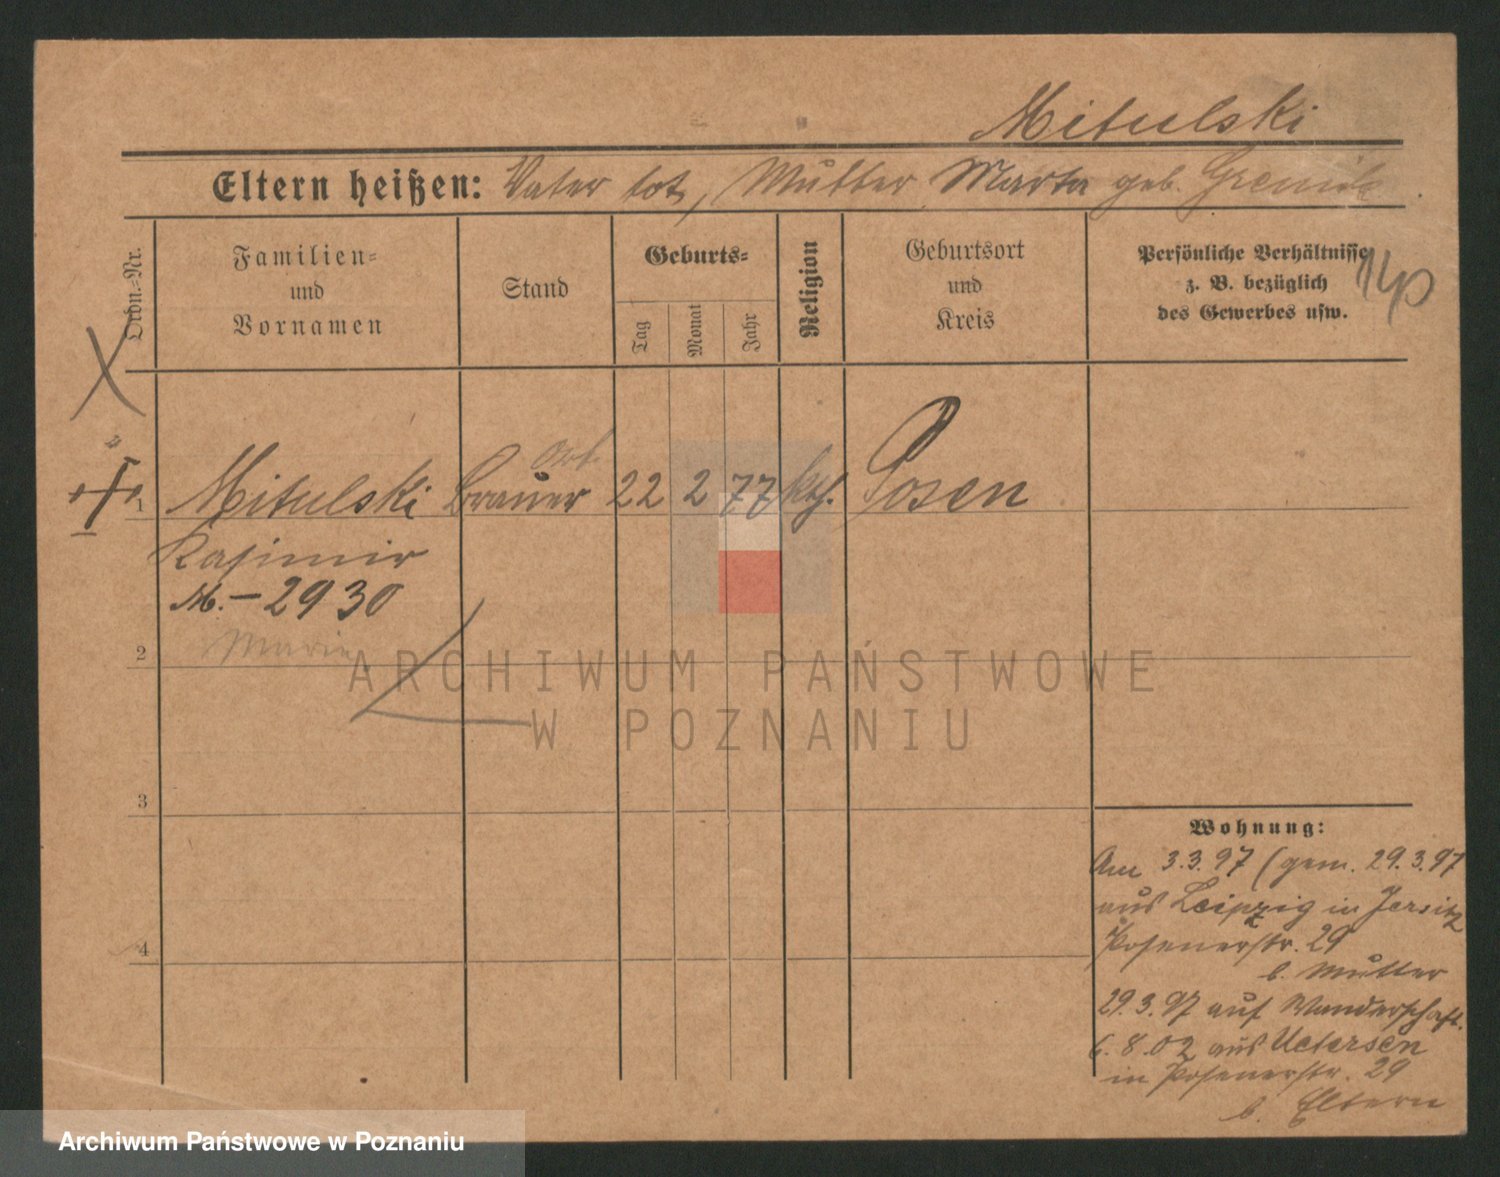 Mitulski
Eltern heißen: Vater tot, Mutter Marta geb.
Ordn.-Nr.
Familien- und Vornamen
Stand
Geburts-
Tag
Monat
Jahr
Religion
Geburtsort und Kreis
Persönliche Verhältnisse
z. B. bezüglich
des Gewerbes usw.
1 Mitulski Brauer 22 2 77 kth. Posen
Kasimir
M.-2930
Marie
2
3
4
ARCHIWUM PAŃSTWOWE
W POZNANIU
Wohnung:
Am 3.3.97 (gem. 29.3.97
aus Leipzig in Jersitz
Posenerstr. 29
b. Mutter
29.3.97 auf Wanderschaft.
6.8.02 aus Uetersen
in Posenerstr. 29
b. Eltern
Archiwum Państwowe w Poznaniu